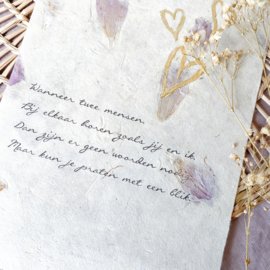 Wanneer twee mensen,
Bij elkaar horen zoals jij en ik
Dan zijn er geen woorden nodig
Maar kun je praten met een blik.